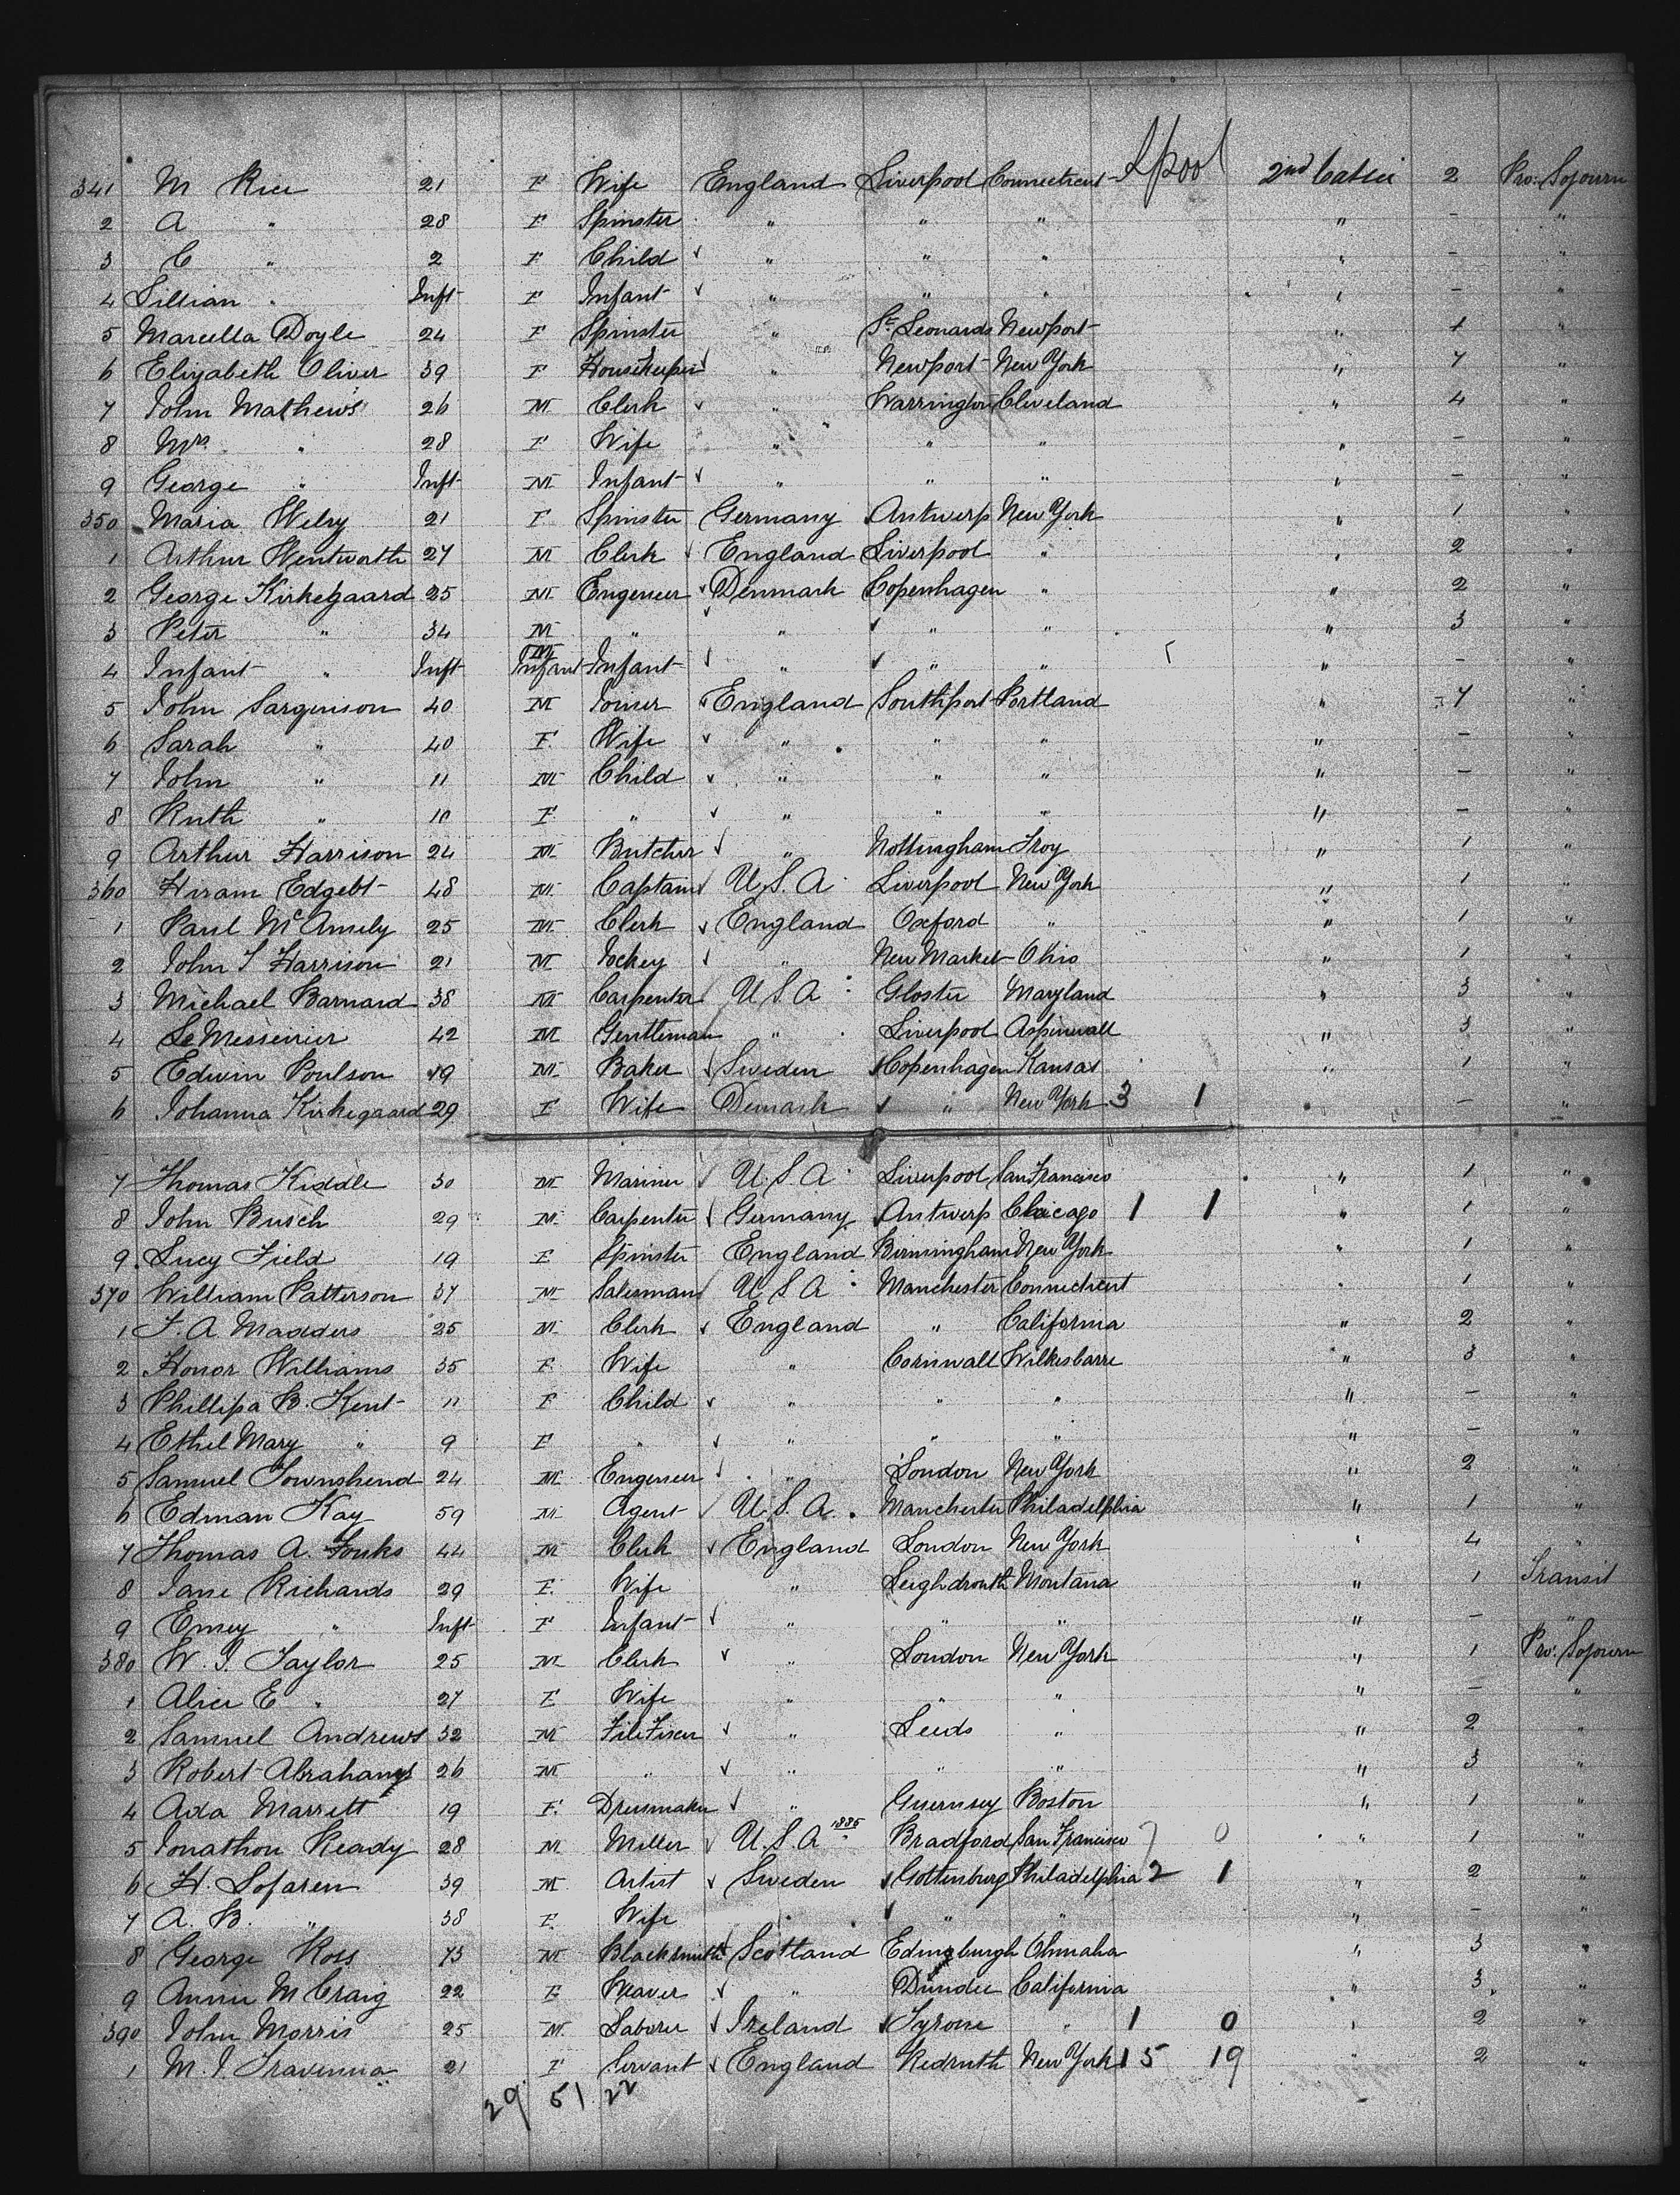 Lpool
341 M Rice 21 F Wife England Liverpool Connecticut 2nd Cabin 2 Pro: Sojourn
2 A " 28 F Spinster " " " " - "
3 C " 2 F Child " " " " - "
4 Lillian " Inft F Infant " " " " - "
5 Marcella Doyle 24 F Spinster " St Leonards Newport " 1 "
6 Elizabeth Oliver 39 F Housekeeper " Newport New York " 7 "
7 John Mathews 26 M Clerk " Warrington Cleveland " 4 "
8 Mrs " 28 F Wife " " " " - "
9 George " Inft M Infant " " " " - "
350 Maria Welry 21 F Spinster Germany Antwerp New York " 1 "
1 Arthur Wentworth 27 M Clerk England Liverpool " " 2 "
2 George Kirkegaard 25 M Engeneer Denmark Copenhagen " " 2 "
3 Peter " 34 M " " " " " 3 "
4 Infant " Inft M Infant Infant " " " " - "
5 John Sarginson 40 M Joiner England Southport Portland " 7 "
6 Sarah " 40 F Wife " " " " - "
7 John " 11 M Child " " " " - "
8 Ruth " 10 F " " " " " - "
9 Arthur Harrison 24 M Butcher " Nottingham Troy " 1 "
360 Hiram Edgebt 48 M Captain U.S.A. Liverpool New York " 1 "
1 Paul McAmely 25 M Clerk England Oxford " " 1 "
2 John T Harrison 21 M Jockey " New Market Ohio " 1 "
3 Michael Barnard 38 M Carpenter U.S.A Gloster Maryland " 3 "
4 Le Messeirier 42 M Gentleman " Liverpool Aspinwall " 3 "
5 Edwin Poulson 19 M Baker Sweden Copenhagen Kansas " 1 "
6 Johanna Kirkegaard 29 F Wife Demark " New York 3 1 " - "
7 Thomas Kiddle 30 M Mariner U.S.A Liverpool San Francisco " 1 "
8 John Busch 29 M Carpenter Germany Antwerp Chicago 1 1 " 1 "
9 Lucy Field 19 F Spinster England Birmingham New York " 1 "
370 William Patterson 37 M Salesman U S A Manchester Connecticut " 1 "
1 F. A Madders 25 M Clerk England " California " 2 "
2 Honor Williams 35 F Wife " Cornwall Wilkesbarre " 3 "
3 Phillipa B. Kent 11 F Child " " " " - "
4 Ethel Mary " 9 F " " " " " - "
5 Samuel Townshend 24 M Engeneer " London New York " 2 "
6 Edman Kay 59 M Agent U.S.A. Manchester Philadelphia " 1 "
7 Thomas A. Fonks 44 M Clerk England London New York " 4 "
8 Jane Richards 29 F. Wife " Montana " 1 Transit
9 Emey " Inft F Infant " " " " - "
380 W. J. Taylor 25 M Clerk " London New York " 1 Pro: Sojourn
1 Alice E " 27 F Wife " " " " - "
2 Samuel Andrews 32 M " Leeds " " 2 "
3 Robert Abrahams 26 M " " " " " 3 "
4 Ada Marrett 19 F. Dressmaker " Guernsey Boston " 1 "
5 Jonathon Ready 28 M Miller U.S.A 1885 Bradford San Francisco 7 0 " 1 "
6 H. Lofaren 39 M Artist Sweden Gottenburg Philadelphia 2 1 " 2 "
7 A. B. " 38 F. Wife " " " " - "
8 George Ross 73 M Blacksmith Scotland Edingburgh Ohmaha " 3 "
9 Annie M Craig 22 F Weaver " Dundee California " 3 "
390 John Morris 25 M. Laborer Ireland Tyrone " 1 0 " 2 "
1 M. J. Travenna 21 F Servant England Redruth New York 15 19 " 2 "
29 51 22